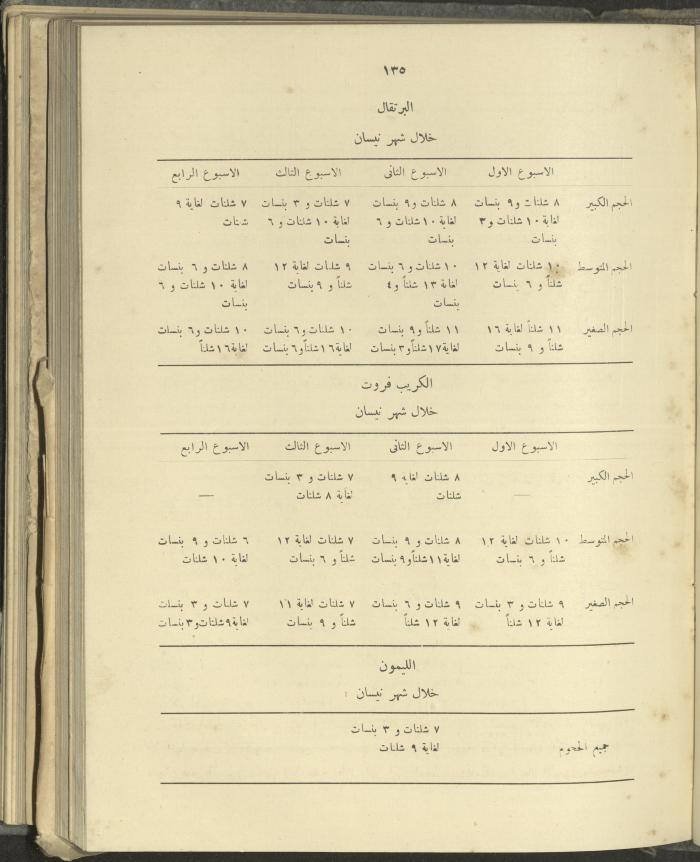 ١٣٥
البرتقال
خلال شهر نيسان
الاسبوع الاول الاسبوع الثانى الاسبوع الثالث الاسبوع الرابع
الحجم الكبير ٨ شلنات و ٩ بنسات ٨ شلنات و ٩ بنسات ٧ شلنات و ٣ بنسات ٧ شلنات لغاية ٩
لغاية ١٠ شلنات و ٣ لغاية ١٠ شلنات و ٦ لغاية ١٠ شلنات و ٦ شلنات
بنسات بنسات بنسات
الحجم المتوسط ١٠ شلنات لغاية ١٢ ١٠ شلنات و ٦ بنسات ٩ شلنات لغاية ١٢ ٨ شلنات و ٦ بنسات
شلناً و ٦ بنسات لغاية ١٣ شلناً و ٤ شلناً و ٩ بنسات لغاية ١٠ شلنات و ٦
بنسات بنسات
الحجم الصغير ١١ شلناً لغاية ١٦ ١١ شلناً و ٩ بنسات ١٠ شلنات و ٦ بنسات ١٠ شلنات و ٦ بنسات
شلناً و ٩ بنسات لغاية ١٧ شلناً و ٣ بنسات لغاية ١٦ شلناً و ٦ بنسات لغاية ١٦ شلناً
الكريب فروت
خلال شهر نيسان
الاسبوع الاول الاسبوع الثانى الاسبوع الثالث الاسبوع الرابع
الحجم الكبير ٨ شلنات لغاية ٩ ٧ شلنات و ٣ بنسات
— شلنات لغاية ٨ شلنات —
الحجم المتوسط ١٠ شلنات لغاية ١٢ ٨ شلنات و ٩ بنسات ٧ شلنات لغاية ١٢ ٦ شلنات و ٩ بنسات
شلناً و ٦ بنسات لغاية ١١ شلناً و ٩ بنسات شلناً و ٦ بنسات لغاية ١٠ شلنات
الحجم الصغير ٩ شلنات و ٣ بنسات ٩ شلنات و ٦ بنسات ٧ شلنات لغاية ١١ ٧ شلنات و ٣ بنسات
لغاية ١٢ شلناً لغاية ١٢ شلناً شلناً و ٩ بنسات لغاية ٩ شلنات و ٣ بنسات
الليمون
خلال شهر نيسان :
٧ شلنات و ٣ بنسات
جميع الحجوم لغاية ٩ شلنات